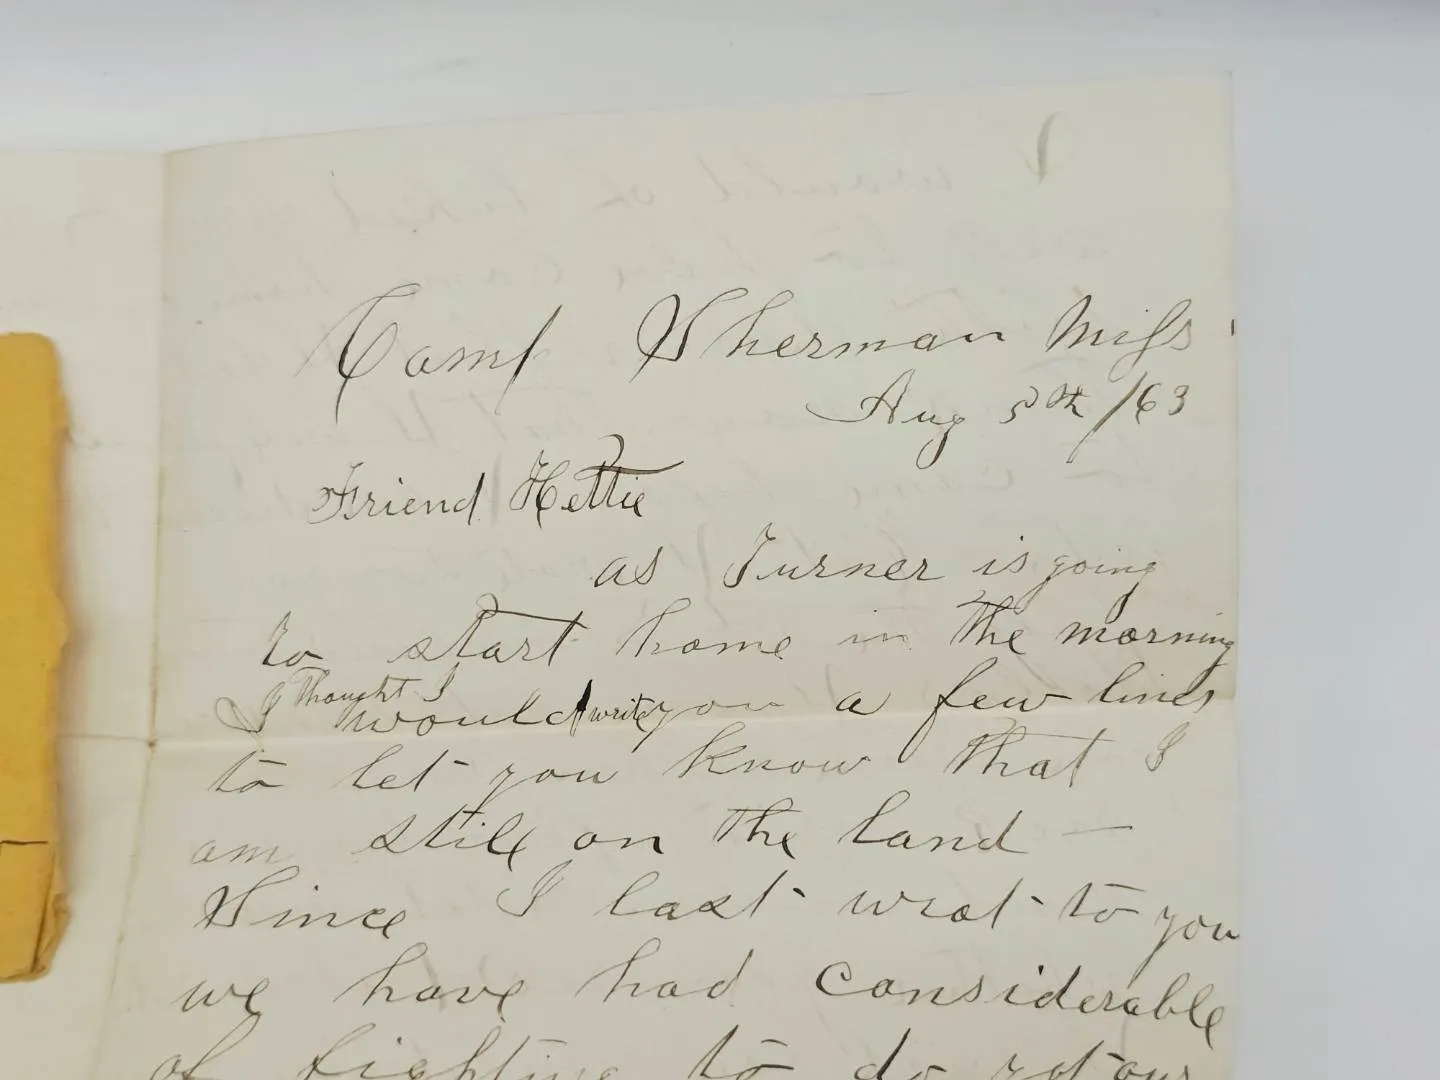 Camp Sherman Miss
Aug 5th /63
Friend Hettie
as Turner is going
to start home in the morning
I thought I would write you a few lines
to let you know that I
am still on the land —
Since I last wrot to you
we have had considerable
of fighting to do